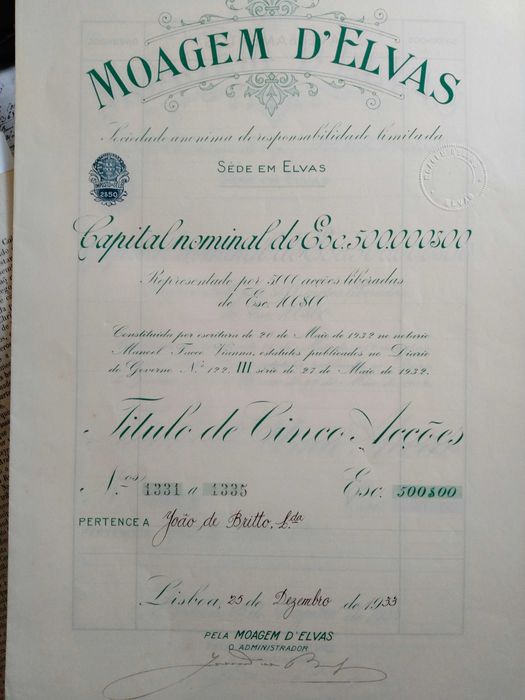 MOAGEM D'ELVAS
Sociedade anonima de responsabilidade limitada
SÉDE EM ELVAS
IMPOSTO DO SELO
2$50
ELVAS
Capital nominal de Esc. 500.000$00
Representado por 5000 acções liberadas
de Esc. 100$00
Constituida por escritura de 20 de Maio de 1932 no notario
Manoel Facco Vianna, estatutos publicados no Diario
do Governo N.º 122. III série de 27 de Maio de 1932.
Titulo de Cinco Acções
N.os 1331 a 1335 Esc. 500$00
PERTENCE A João de Britto, L.da
Lisboa, 25 de Dezembro de 1933
PELA MOAGEM D'ELVAS
O ADMINISTRADOR